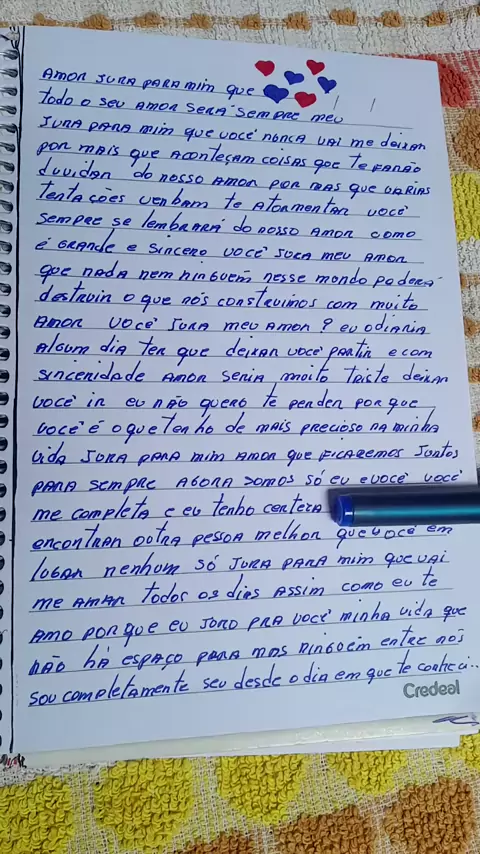 AMOR JURA PARA MIM QUE
todo o SEU AMOR SERÁ SEMPRE MEU
JURA PARA MIM QUE VOCÊ NUNCA VAI ME DEIXAR
POR MAIS QUE ACONTEÇAM COISAS QUE TE FARÃO
DUVIDAR DO NOSSO AMOR POR MAS QUE VARIAS
TENTAÇÕES VENHAM TE ATORMENTAR VOCÊ
SEMPRE SE LEMBRARÁ DO NOSSO AMOR COMO
É GRANDE E SINCERO VOCÊ JURA MEU AMOR
QUE NADA NEM NINGUÉM NESSE MUNDO PODERÁ
DESTRUIR O QUE NÓS CONSTRUIMOS COM MUITO
AMOR VOCÊ JURA MEU AMOR? EU ODIARIA
ALGUM DIA TER QUE DEIXAR VOCÊ PARTIR E COM
SINCERIDADE AMOR SERIA MUITO TRISTE DEIXAR
VOCÊ IR EU NÃO QUERO TE PERDER POR QUE
VOCÊ É O QUE TENHO DE MAIS PRECIOSO NA MINHA
VIDA JURA PARA MIM AMOR QUE FICAREMOS JUNTOS
PARA SEMPRE AGORA SOMOS SÓ EU E VOCÊ VOCÊ
ME COMPLETA E EU TENHO CERTEZA
ENCONTRAR OUTRA PESSOA MELHOR QUE VOCÊ EM
LUGAR NENHUM SÓ JURA PARA MIM QUE VAI
ME AMAR TODOS OS DIAS ASSIM COMO EU TE
AMO PORQUE EU JURO PRA VOCÊ MINHA VIDA QUE
NÃO HÁ ESPAÇO PARA MAS NINGUÉM ENTRE NÓS
SOU COMPLETAMENTE SEU DESDE O DIA EM QUE TE CONHECI...
Credeal